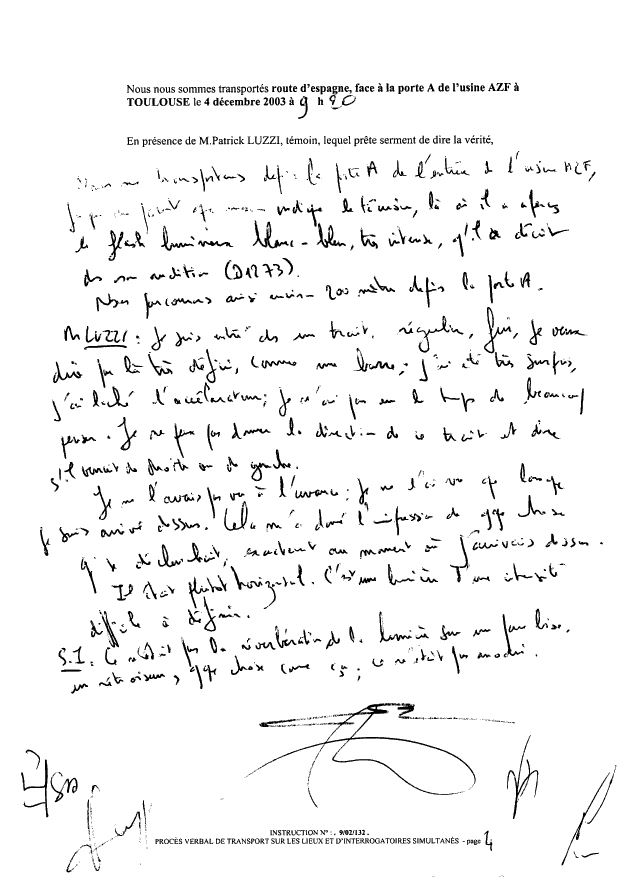 Nous nous sommes transportés route d'espagne, face à la porte A de l'usine AZF à
TOULOUSE le 4 décembre 2003 à 9 h 20
En présence de M.Patrick LUZZI, témoin, lequel prête serment de dire la vérité,
Nous nous transportons depuis la porte A de l'entrée de l'usine AZF,
jusqu'au point que nous indique le témoin, là où il a aperçu
le flash lumineux blanc-bleu, très intense, qu'il a décrit
ds son audition (D1273).
Nous parcourons ainsi environ 200 mètres depuis la porte A.
M LUZZI : Je suis entré ds un trait, régulier, fin, je veux
dire par là très défini, comme une barre ; j'ai été très surpris,
j'ai lâché l'accélérateur ; je n'ai pas eu le temps de beaucoup
penser. Je ne peux pas donner la direction de ce trait et dire
s'il venait de droite ou de gauche.
Je ne l'avais pas vu à l'avance ; je ne l'ai vu que lorsque
je suis arrivé dessus. Cela m'a donné l'impression de qqe chose
qui se déclenchait, exactement au moment où j'arrivais dessus.
Il était plutôt horizontal. C'est une lumière d'une intensité
difficile à définir.
S.I. Ce n'était pas la réverbération de la lumière sur un pare brise,
un rétroviseur, qqe chose comme ça ; ce n'était pas anodin.
INSTRUCTION N° : . 9/02/132 .
PROCÈS VERBAL DE TRANSPORT SUR LES LIEUX ET D'INTERROGATOIRES SIMULTANÉS - page 4